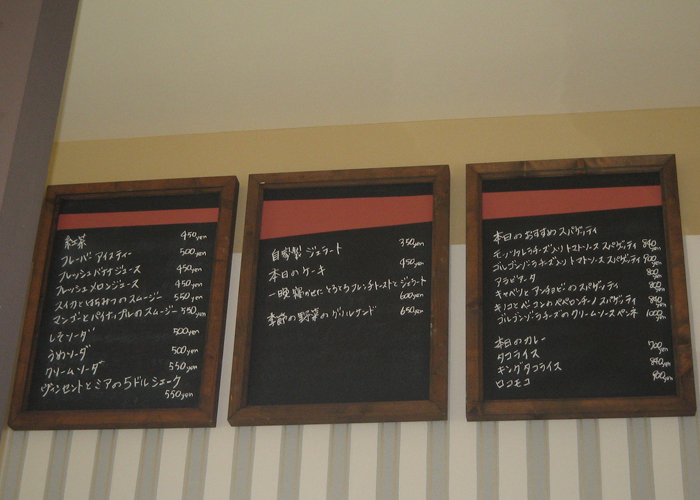 紅茶 450yen
フレーバーアイスティー 500yen
フレッシュバナナジュース 450yen
フレッシュメロンジュース 450yen
スイカとはちみつのスムージー 550yen
マンゴーとパイナップルのスムージー 550yen
しそソーダ 500yen
うめソーダ 500yen
クリームソーダ 550yen
ヴィンセントとミアの5ドルシェーク
550yen
自家製 ジェラート 350yen
本日の ケーキ 450yen
一晩寝かせた とろとろフレンチトーストと ジェラート
600yen
季節の野菜の グリルサンド 650yen
本日の おすすめ スパゲッティ
モッツァレラチーズ入り トマトソース スパゲッティ 840yen
ゴルゴンゾーラチーズ入り トマトソース スパゲッティ 900yen
アラビアータ 800yen
キャベツと アンチョビの スパゲッティ 800yen
キノコと ベーコンの ペペロンチーノ スパゲッティ 840yen
ゴルゴンゾーラチーズの クリームソース ペンネ 1000yen
本日の カレー 700yen
タコライス
キングタコライス
ロコモコ